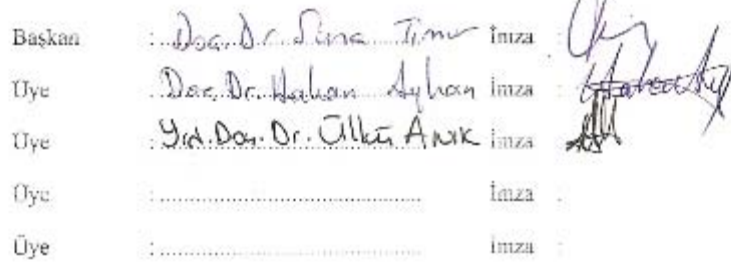 Başkan : Doç. Dr. Suna Timur İmza :
Üye : Doç. Dr. Hakan Ayhan İmza :
Üye : Yrd. Doç. Dr. Ülkü Anık İmza :
Üye : İmza :
Üye : İmza :